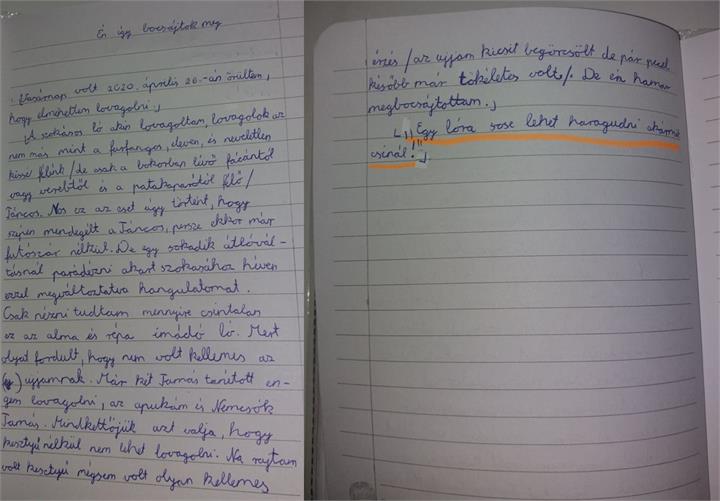 Én így bocsájtok meg
Vasárnap volt 2020. április 26.-án örültem,
hogy elmehettem lovagolni.
A szokásos ló akin lovagoltam, lovagolok az
nem más mint a furfangos, eleven, és neveletlen
kissé félénk /de csak a bokorban lévő fácántól
vagy verebtől és a patakaparótól félő/
Táncos. Nos ez az eset úgy történt, hogy
szépen mendegélt a Táncos, persze ekkor már
futószár nélkül. De egy sokadik átlóvál-
tásnál parádézni akart szokásához híven
ezzel megváltoztatva hangulatomat.
Csak nézni tudtam mennyire csintalan
ez az alma és répa imádó ló. Mert
olyat fordult, hogy nem volt kellemes az
ujjamnak. Már két Tamás tanított en-
gem lovagolni, az apukám és Nemcsók
Tamás. Mindkettőjük azt valja, hogy
kesztyű nélkül nem lehet lovagolni. Na rajtam
volt kesztyű mégsem volt olyan kellemes
érzés /az ujjam kicsit begörcsölt de pár perccel
később már tökéletes volt/. De én hamar
megbocsájtottam.
Egy lóra sose lehet haragudni akármit
csinál!